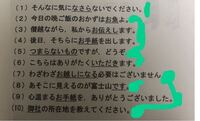 (1) そんなに気になさらないでください。
(2) 今日の晩ご飯のおかずはお魚よ。
(3) 僭越ながら、私からお伝えします。
(4) 後日、そちらにお手紙を出します。
(5) つまらないものですが、どうぞ
(6) こちらはありがたくいただきます。
(7) わざわざお越しになる必要はございません
(8) あそこに見えるのが富士山です。
(9) 心温まるお手紙を、ありがとうございました。
(10) 御社の所在地を教えてください。